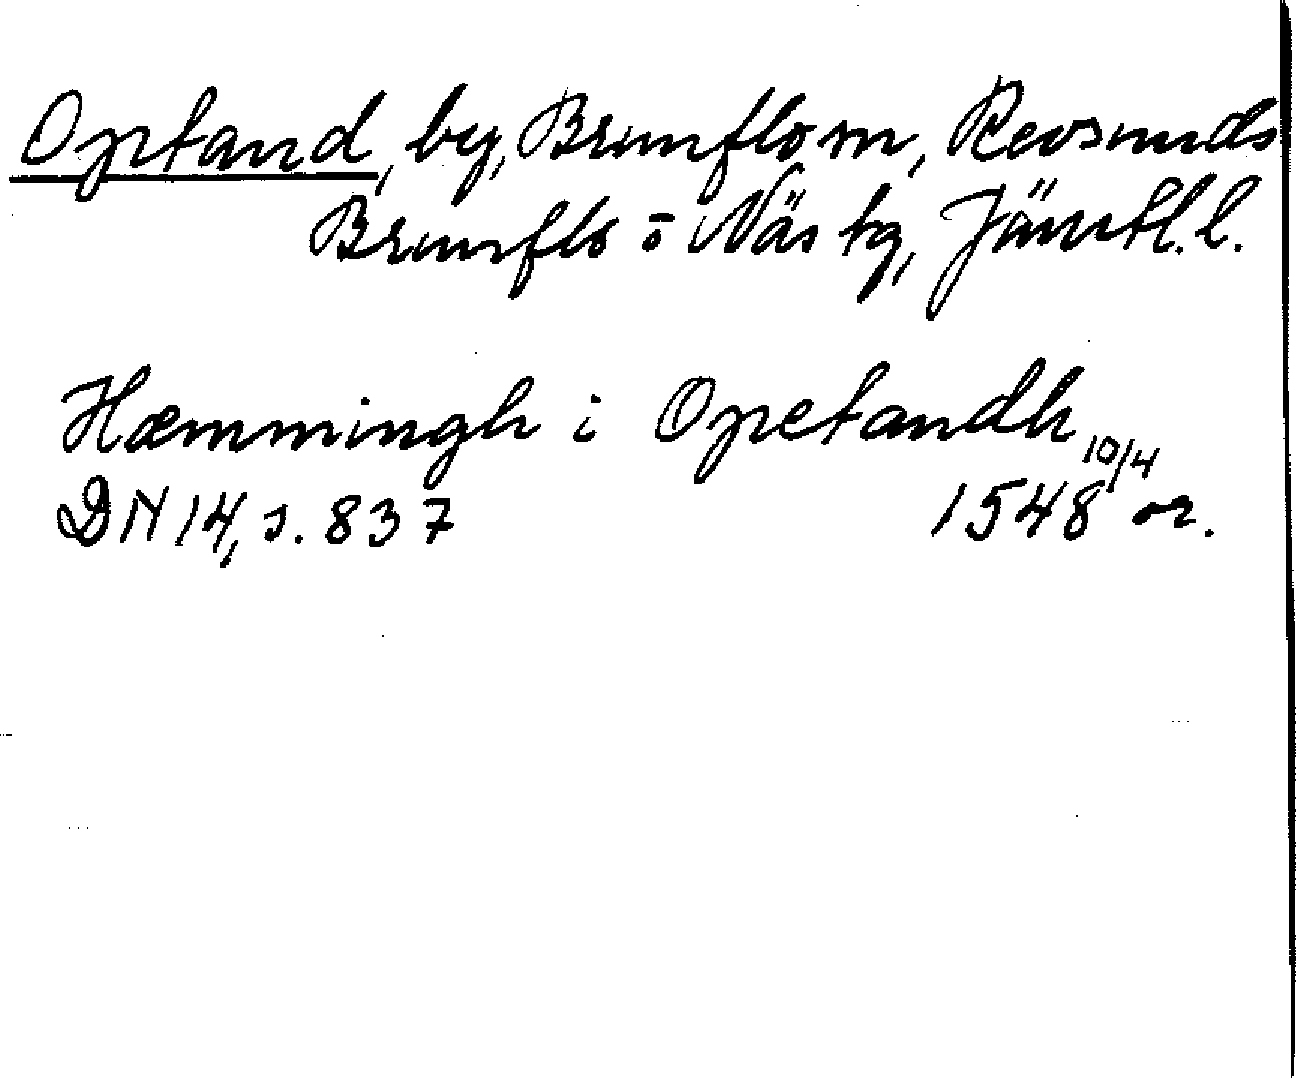 Optand, by, Brunflo sn, Revsunds
Brunflo o Näs tg, Jämtl. l.
Hæmmingh i Opetandh
10/4
DN 14, s. 837 1548 or.